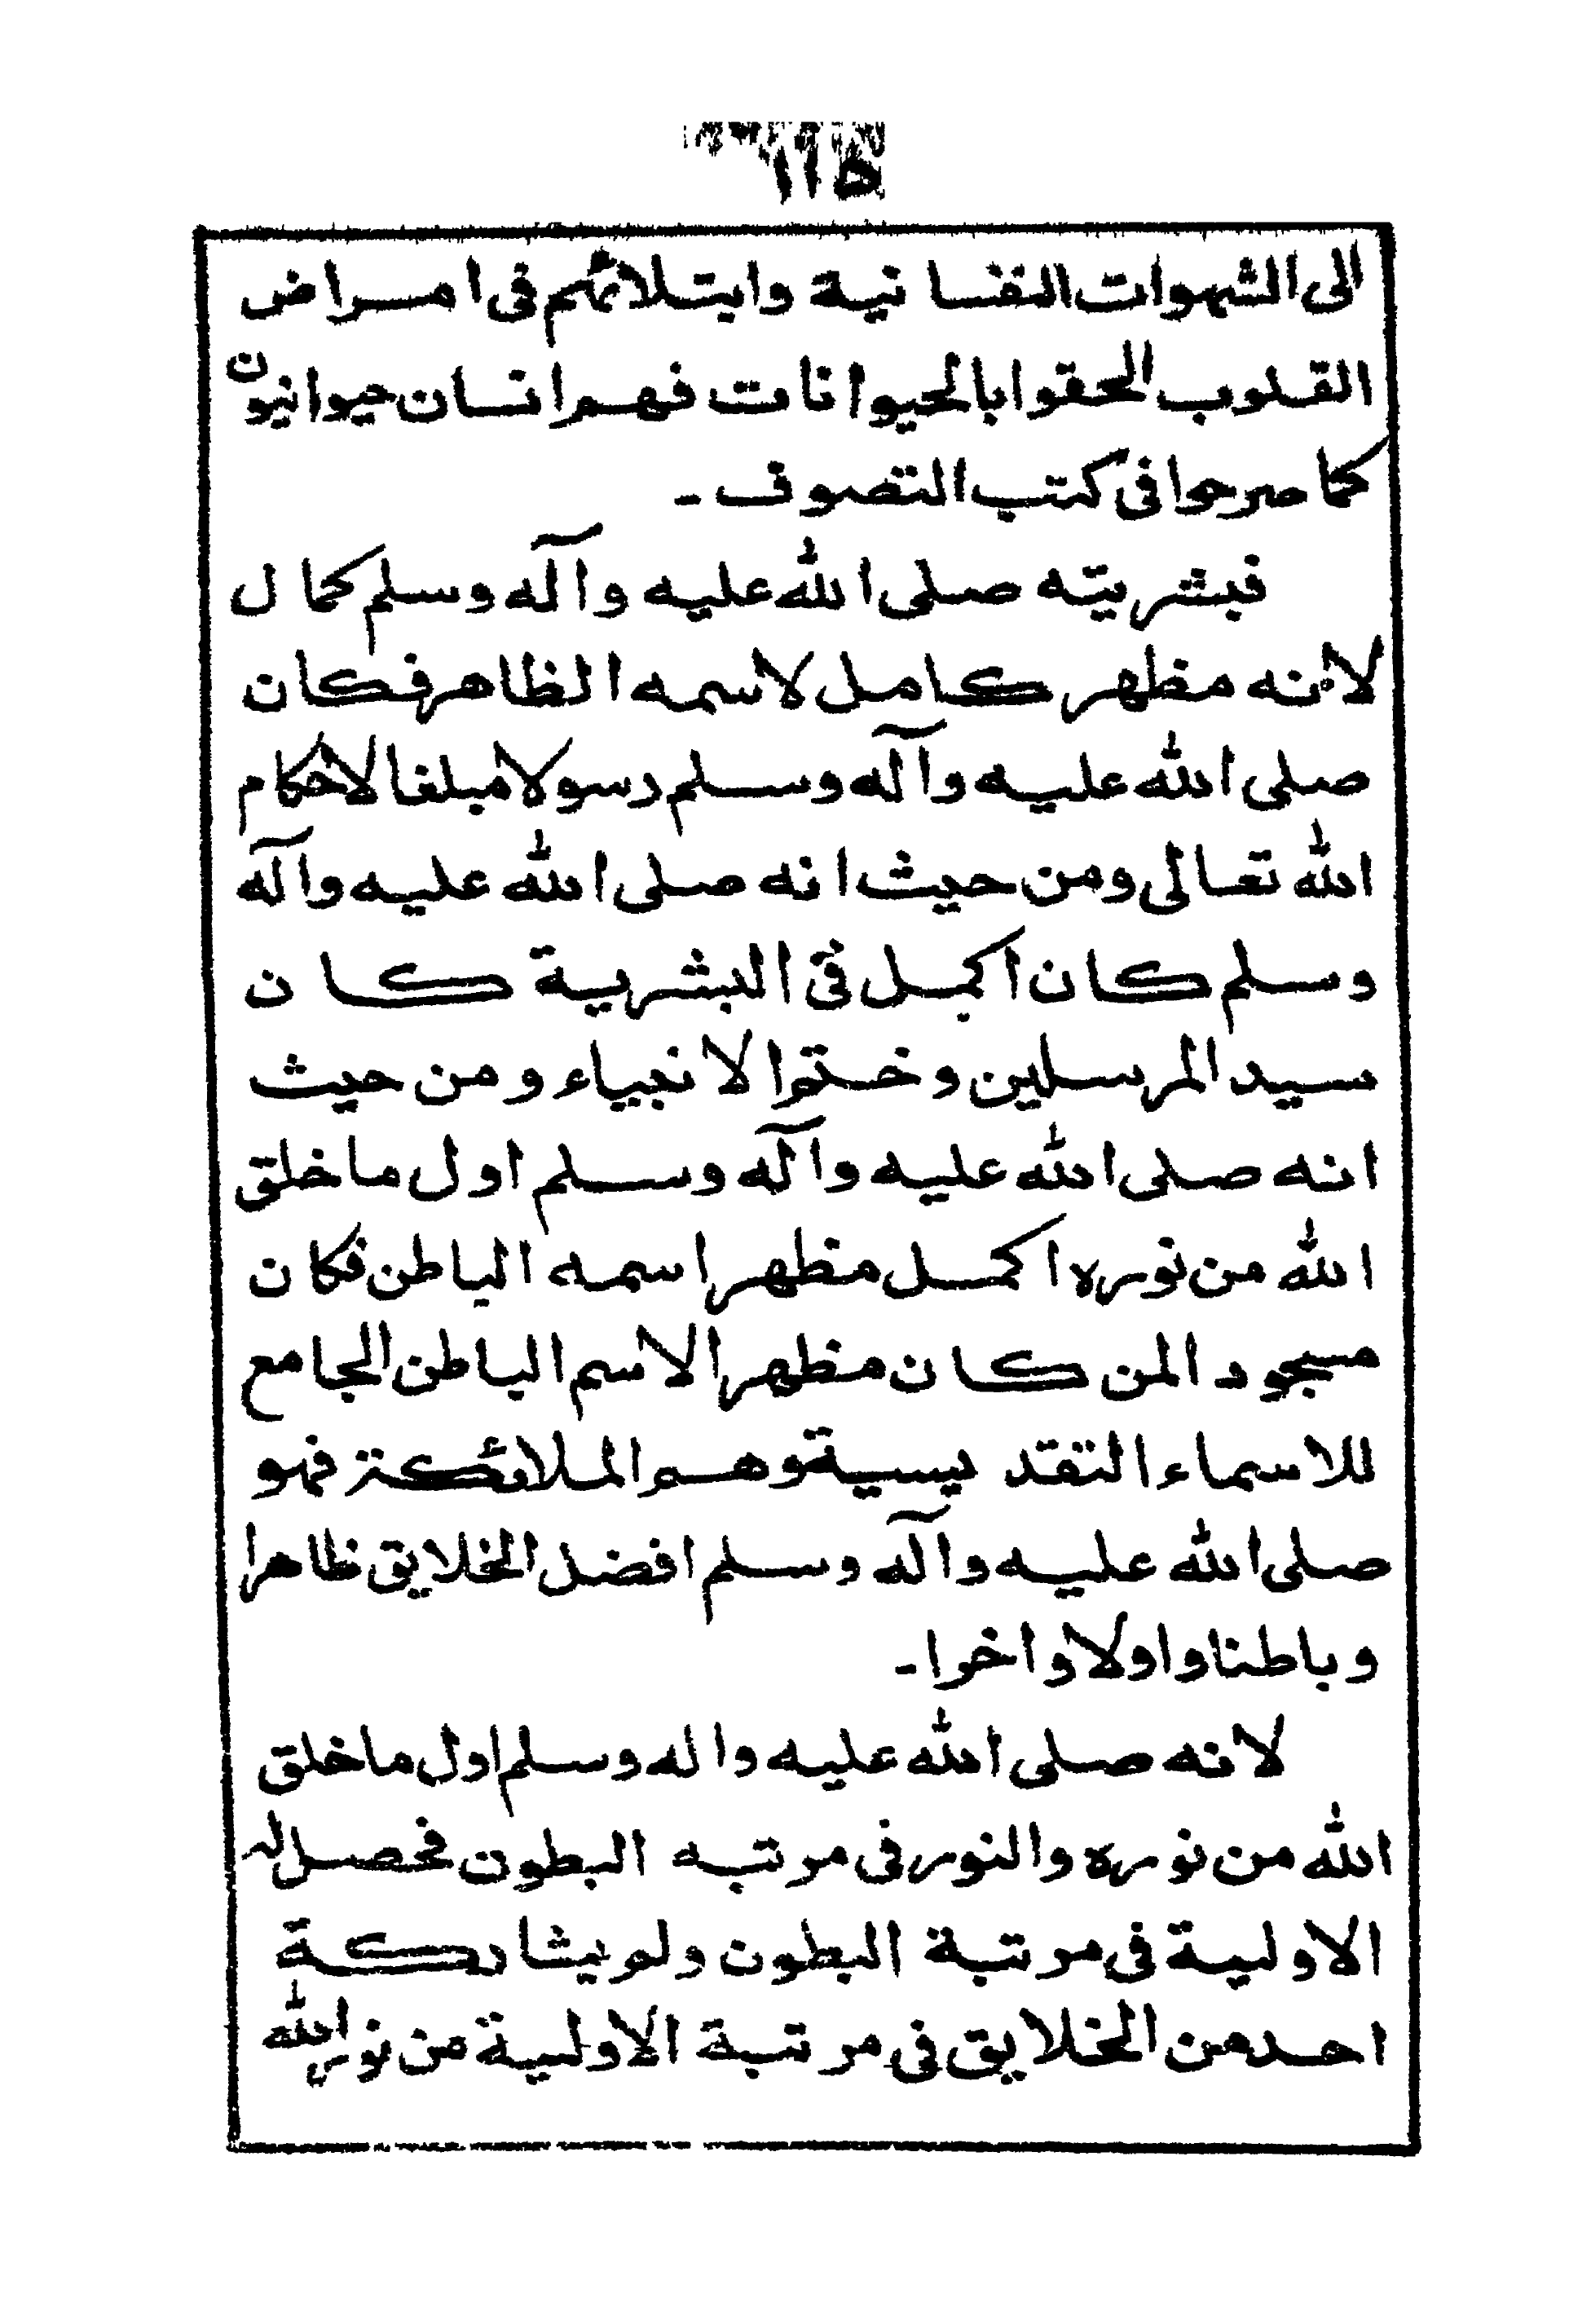 الى الشهوات النفسانية وابتلائهم فى امراض
القلوب الحقوا بالحيوانات فهم انسان حيوانيون
كما صرحوا فى كتب التصوف -
فبشريته صلى الله عليه وآله وسلم كمال
لانه مظهر كامل لاسمه الظاهر فكان
صلى الله عليه وآله وسلم رسولا مبلغا لاحكام
الله تعالى ومن حيث انه صلى الله عليه وآله
وسلم كان اكمل فى البشرية كان
سيد المرسلين وختم الانبياء ومن حيث
انه صلى الله عليه وآله وسلم اول ما خلق
الله من نوره اكمل مظهر اسمه الباطن فكان
مسجود المن كان مظهر الاسم الباطن الجامع
للاسماء التقديسية وهم الملائكة فهو
صلى الله عليه وآله وسلم افضل الخلايق ظاهرا
وباطنا واولا واخرا -
لانه صلى الله عليه واله وسلم اول ما خلق
الله من نوره والنور فى مرتبه البطون فحصل له
الاولية فى مرتبة البطون ولم يشاركة
احد من الخلايق فى مرتبة الاولية من نور الله